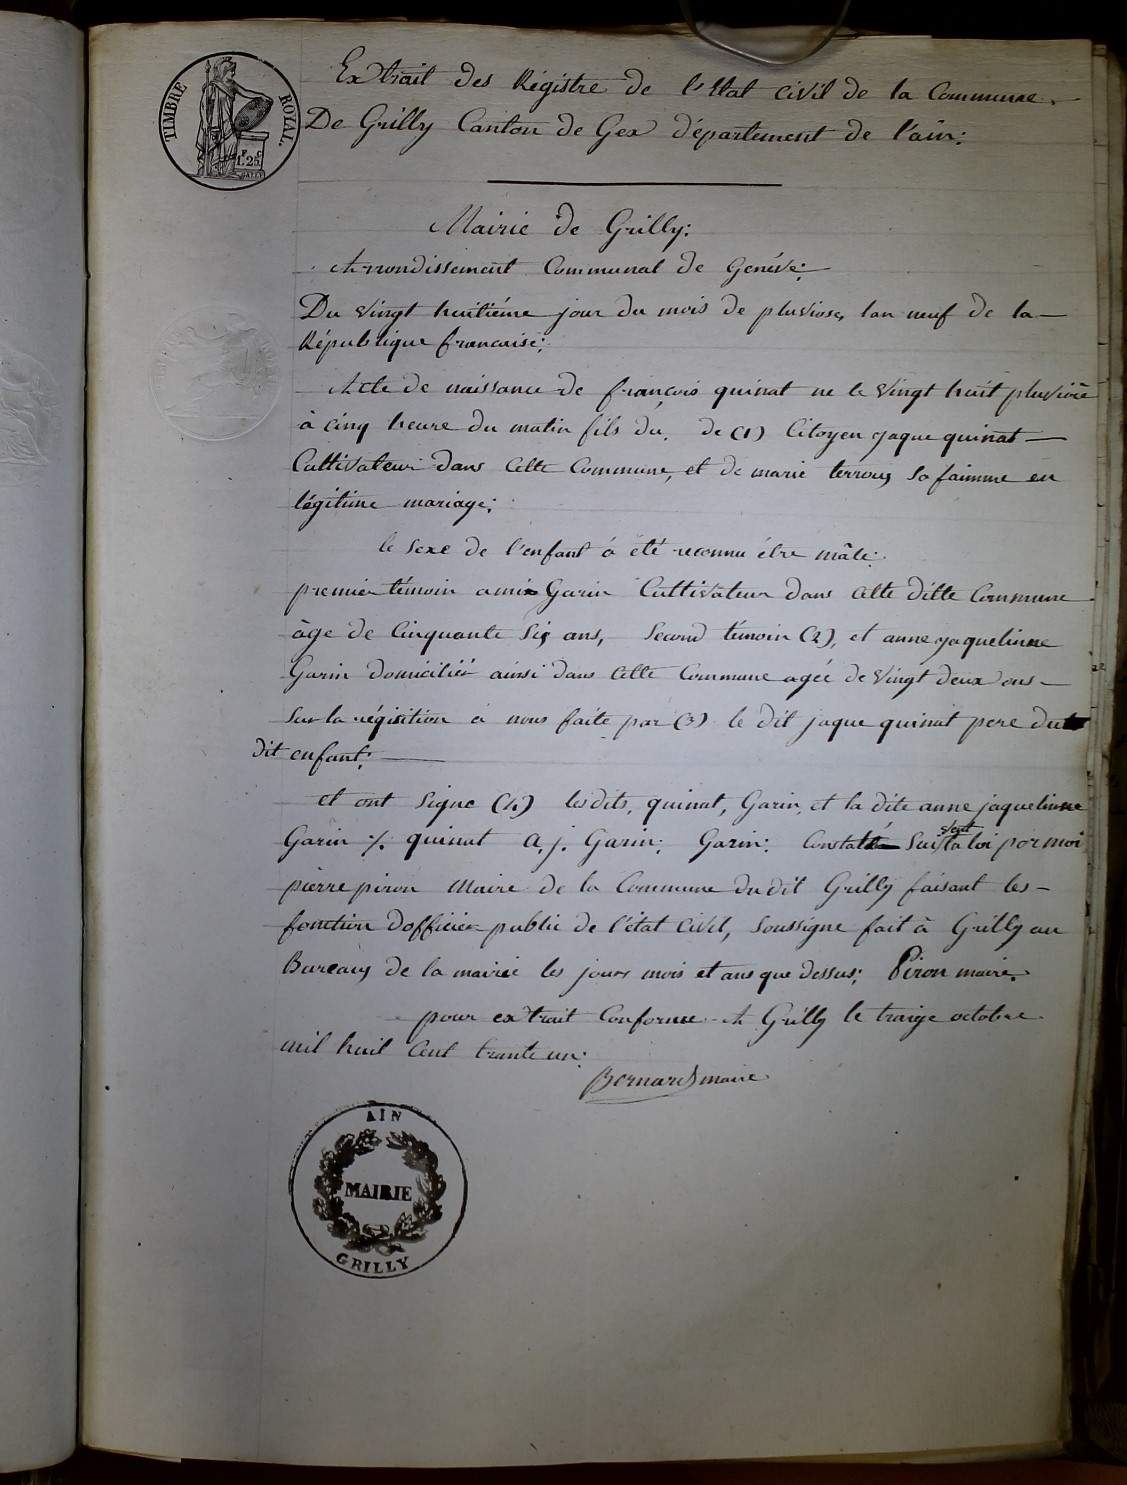 TIMBRE ROYAL.
1F 25C
Extrait des Régistre de l'Etat civil de la Commune.
De Grilly Canton de Gex département de l'ain:
Mairie de Grilly:
Arrondissement Communal de Genéve:
Du vingt huitiéme jour du mois de pluviose, lan neuf de la
République francaise:
Acte de naissance de françois quinat ne le vingt huit pluviôse
à cinq heure du matin fils du, de (1) Citoyen jaque quinat
Cultivateur dans cette Commune, et de marie terroux sa faimme en
légitime mariage;
le sexe de l'enfant à été reconnu être mâle:
premier témoin ami Garin Cultivateur dans cette ditte Commune
âge de Cinquante six ans, second témoin (2), et anne jaquelinne
Garin domiciliée ainsi dans cette Commune agée de vingt deux ans
sur la régisition a nous faite par (3) le dit jaque quinat pere dut
dit enfant:
et ont signe (4) lesdits, quinat, Garin, et la dite anne jaquelinne
Garin %. quinat a. j. Garin: Garin: Constaté suivent la loi por moi
pierre piron Maire de la Commune dudit Grilly faisant les
fonction dofficier public de l'état civil, soussigne fait à Grilly au
Bureaux de la mairie les jours mois et ans que dessus: Piron maire.
pour extrait Conforme A Grilly le traize octobre
mil huit cent trante un:
Bernard maire
AIN
MAIRIE
GRILLY